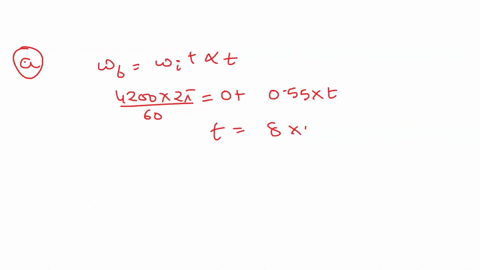 a
ω_b = ω_i + α t
4200 × 2π / 60 = 0 + 0.55 × t
t = 8 ×